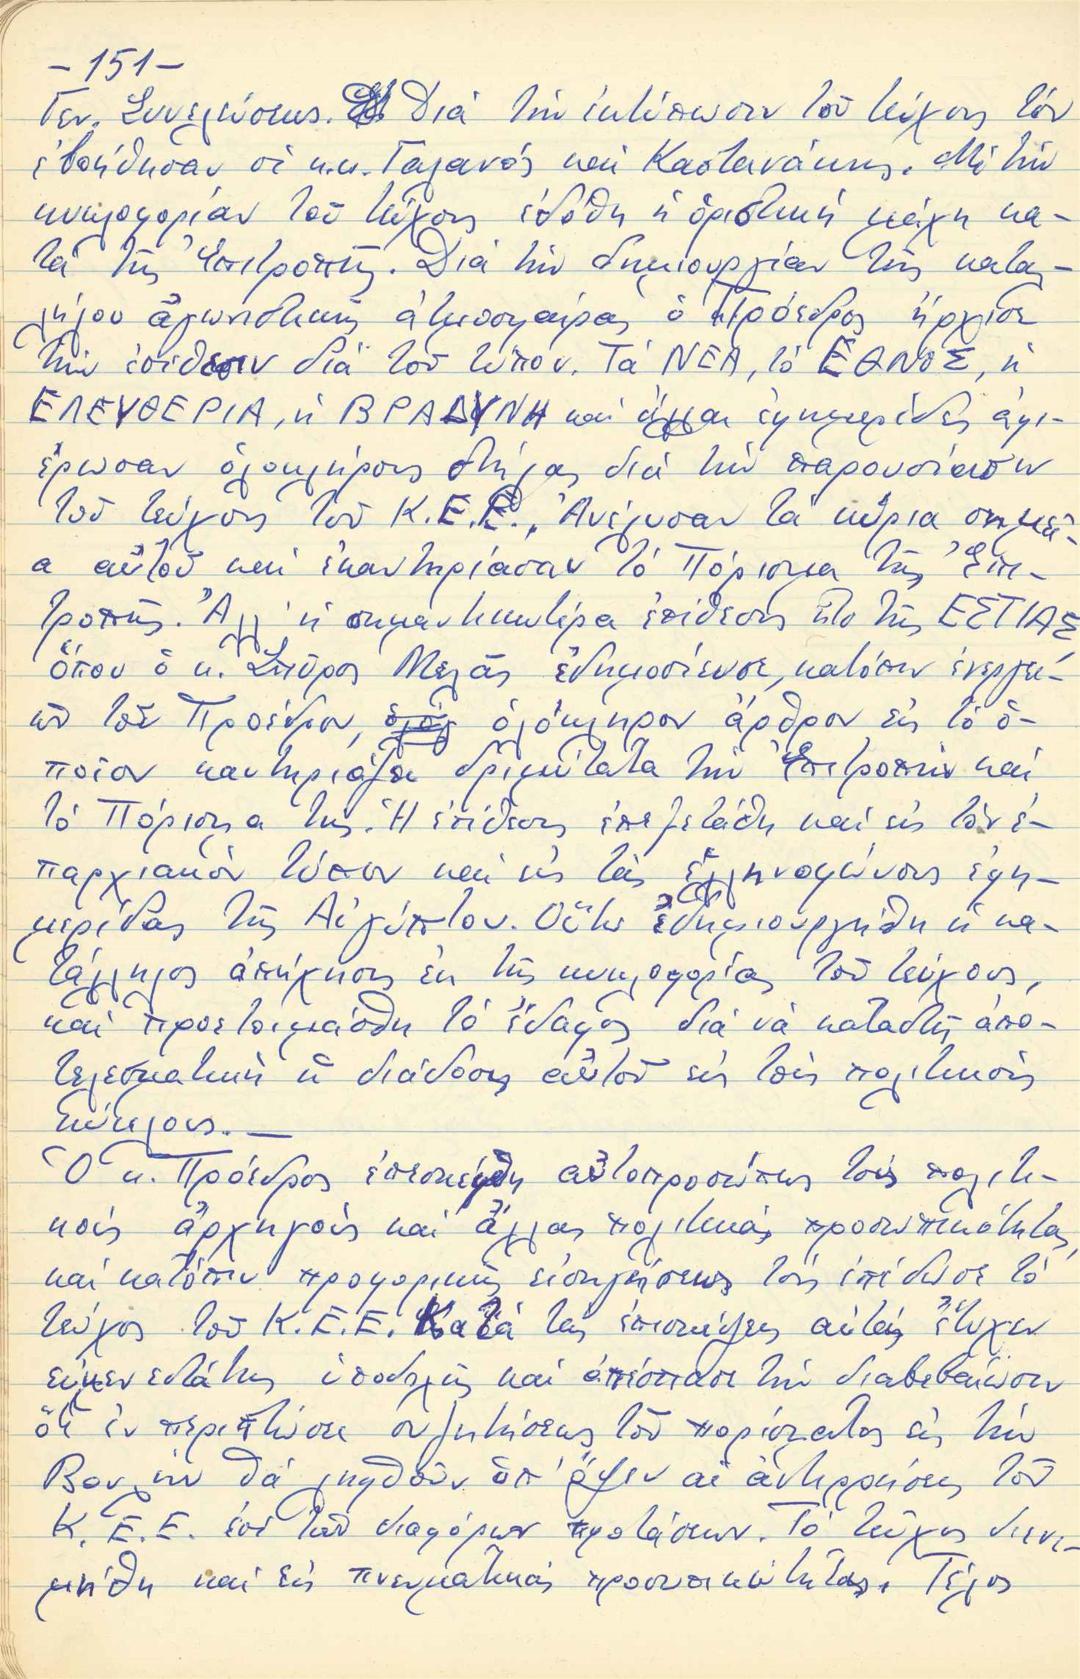 -151-
Γεν. Συνελεύσεως. Διά τήν ἐκτύπωσιν τοῦ τεύχους τόν
ἐβοήθησαν οἱ κ.κ. Γαλανός καί Καστανάκης. Μέ τήν
κυκλοφορίαν τοῦ τεύχους ἐδόθη ἡ ὁριστική μάχη κα-
τά τῆς Ἐπιτροπῆς. Διά τήν δημιουργίαν τῆς καταλ-
λήλου ἀγωνιστικῆς ἀτμοσφαίρας ὁ Πρόεδρος ἤρχισε
τήν ἐπίθεσιν διά τοῦ τύπου. Τά ΝΕΑ, τό ΕΘΝΟΣ, ἡ
ΕΛΕΥΘΕΡΙΑ, ἡ ΒΡΑΔΥΝΗ καί ἄλλαι ἐφημερίδες ἀφι-
έρωσαν ὁλοκλήρους στήλας διά τήν παρουσίασιν
τοῦ τεύχους τοῦ Κ.Ε.Ε. Ἀνέλυσαν τά κύρια σημεῖ-
α αὐτοῦ καί ἐκαυτηρίασαν τό Πόρισμα τῆς Ἐπι-
τροπῆς. Ἀλλ' ἡ σημαντικωτέρα ἐπίθεσις ἦτο τῆς ΕΣΤΙΑΣ
ὅπου ὁ κ. Σπῦρος Μελᾶς ἐδημοσίευσε, κατόπιν ἐνεργει-
ῶν τοῦ Προέδρου, ὁλόκληρον ἄρθρον εἰς τό ὁ-
ποῖον καυτηριάζει δριμύτατα τήν Ἐπιτροπήν καί
τό Πόρισμα της. Ἡ ἐπίθεσις ἐπεξετάθη καί εἰς τόν ἐ-
παρχιακόν τύπον καί εἰς τάς ἑλληνοφώνους ἐφη-
μερίδας τῆς Αἰγύπτου. Οὕτω ἐδημιουργήθη ἡ κα-
τάλληλος ἀπήχησις ἐκ τῆς κυκλοφορίας τοῦ τεύχους,
καί προετοιμάσθη τό ἔδαφος διά νά καταστῇ ἀπο-
τελεσματική ἡ διάδοσις αὐτοῦ εἰς τούς πολιτικούς
κύκλους.—
Ὁ κ. Πρόεδρος ἐπεσκέφθη αὐτοπροσώπως τούς πολιτι-
κούς ἀρχηγούς καί ἄλλας πολιτικάς προσωπικότητας,
καί κατόπιν προφορικῆς εἰσηγήσεως τούς ἐπέδωσε τό
τεῦχος τοῦ Κ.Ε.Ε. Κατά τάς ἐπισκέψεις αὐτάς ἔτυχεν
εὐμενεστάτης ὑποδοχῆς καί ἀπέσπασε τήν διαβεβαίωσιν
ὅτι ἐν περιπτώσει συζητήσεως τοῦ πορίσματος εἰς τήν
Βουλήν θά ληφθοῦν ὑπ' ὄψιν αἱ ἀντιρρήσεις τοῦ
Κ.Ε.Ε. ἐπί τῶν διαφόρων προτάσεων. Τό τεῦχος διενε-
μήθη καί εἰς πνευματικάς προσωπικότητας. Τέλος